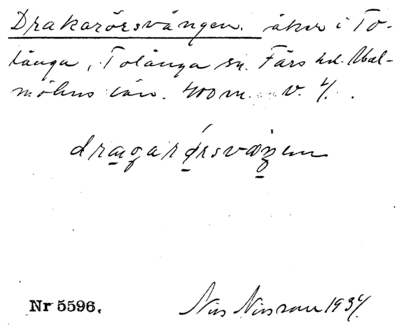 Drakarörsvängen. åker i To-
långa, Tolånga sn. Färs hd. Mal-
möhus län. 400 m. V. 4.
dragarörsvæŋen
Nr 5596. Nils Nilsson 1934.